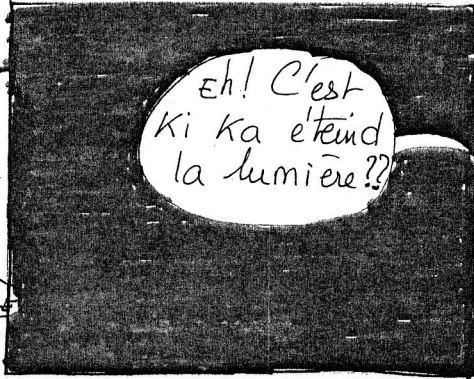 Eh! C'est
Ki Ka éteind
la lumière??